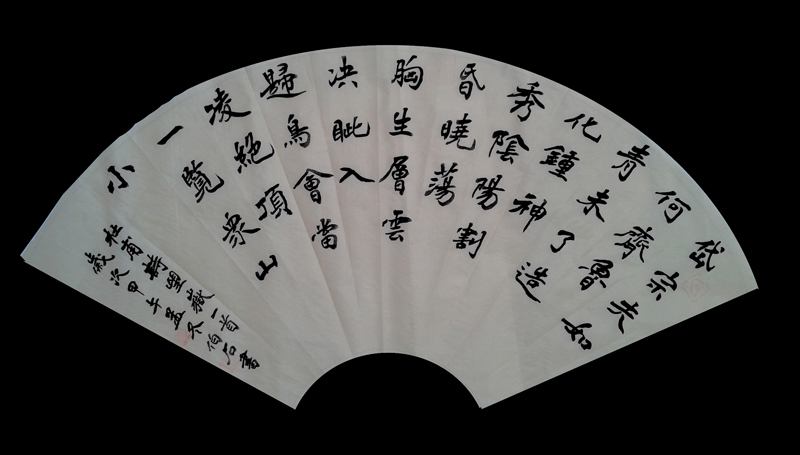 岱宗夫如
何齊魯
青未了造
化鍾神
秀陰陽割
昏曉蕩
胸生層雲
决眦入
歸鳥會當
凌絕頂
一覽衆山
小
杜甫詩望嶽一首
歲次甲午孟冬伯石書